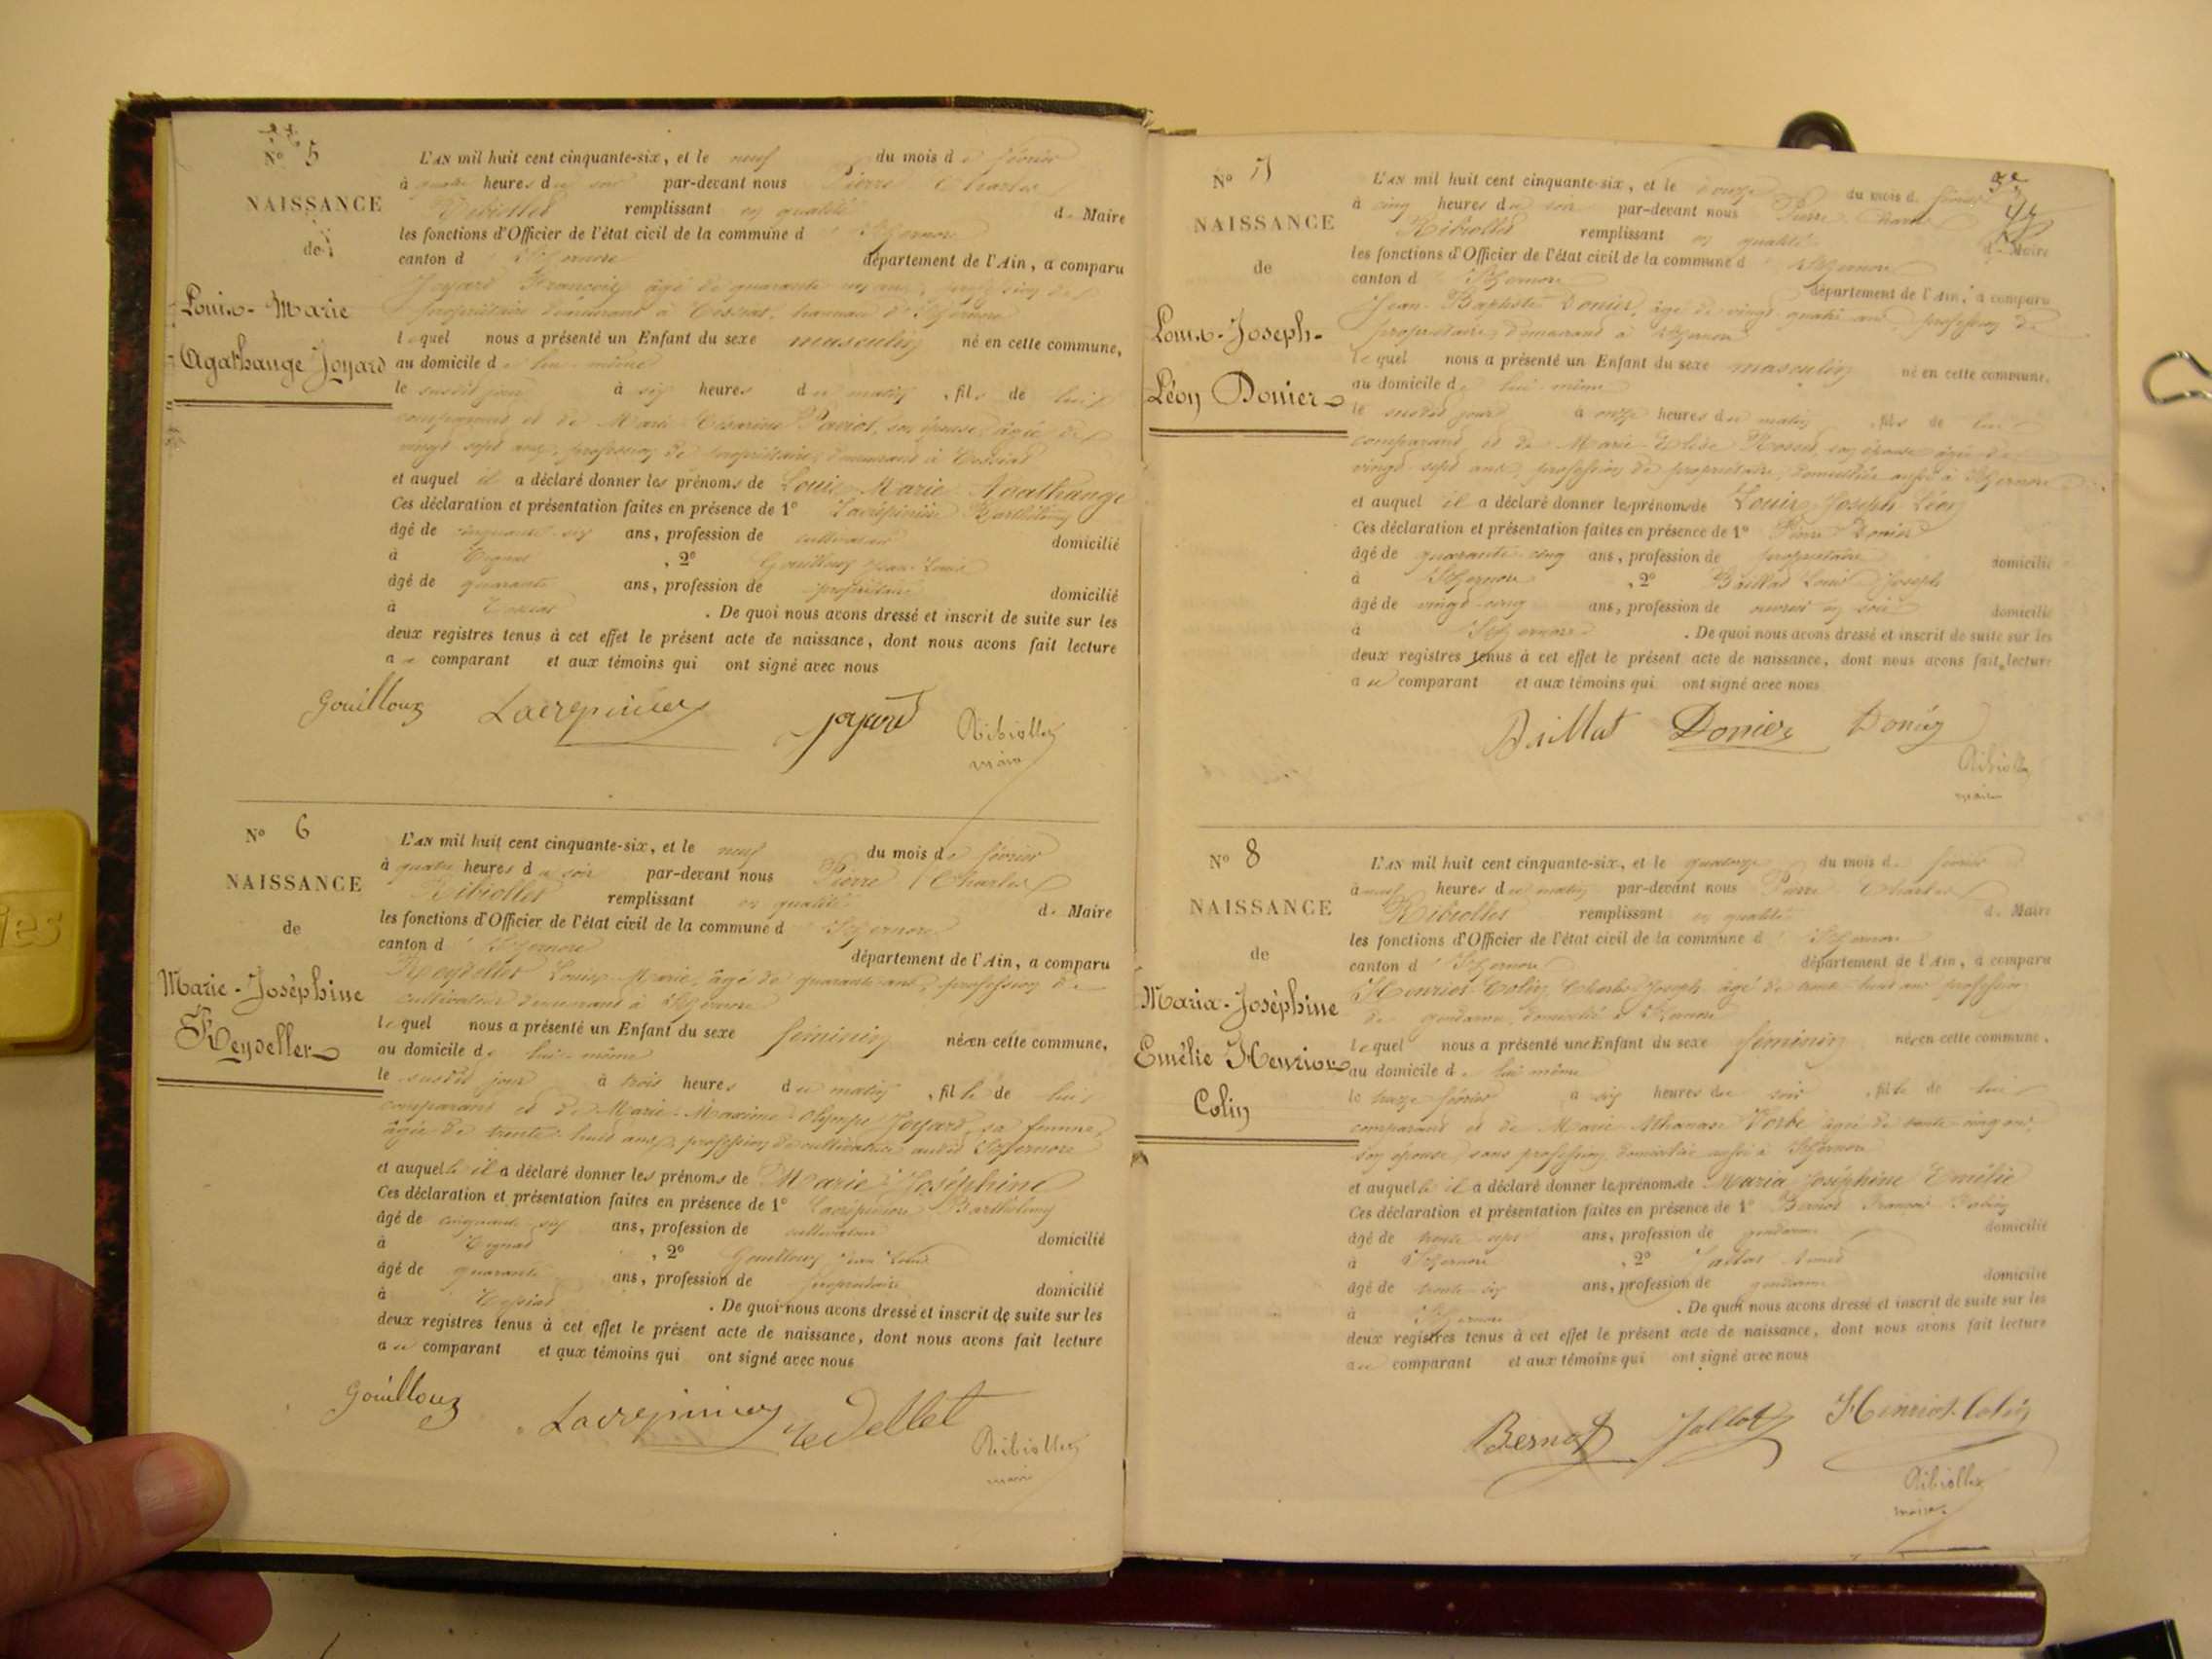 Nº 5
NAISSANCE
de
Louis-Marie
Agathange Joyard
L'AN mil huit cent cinquante-six, et le neuf du mois de février
à quatre heures du soir par-devant nous Pierre Charles
Ribiollet remplissant en qualité de Maire
les fonctions d'Officier de l'état civil de la commune d
canton d département de l'Ain, a comparu
Joyard François âgé de quarante un ans, profession de
propriétaire demeurant à Cessiat, hameau d'
lequel nous a présenté un Enfant du sexe masculin né en cette commune,
au domicile de lui-même
le susdit jour à six heures du matin, fils de lui
comparant et de Marie Césarine son épouse, âgée de
vingt sept ans, profession de propriétaire, demeurant à Cessiat
et auquel il a déclaré donner les prénoms de Louis Marie Agathange
Ces déclaration et présentation faites en présence de 1º Lacrépinière Barthélemy
âgé de cinquante six ans, profession de cultivateur domicilié
à , 2º Gouilloux Jean Louis
âgé de quarante ans, profession de propriétaire domicilié
à Cessiat . De quoi nous avons dressé et inscrit de suite sur les
deux registres tenus à cet effet le présent acte de naissance, dont nous avons fait lecture
au comparant et aux témoins qui ont signé avec nous
Gouilloux Joyard Ribiollet
maire
Nº 6
NAISSANCE
de
Marie-Joséphine
Reydellet
L'AN mil huit cent cinquante-six, et le neuf du mois de février
à quatre heures du soir par-devant nous Pierre Charles
Ribiollet remplissant en qualité de Maire
les fonctions d'Officier de l'état civil de la commune d
canton d département de l'Ain, a comparu
Reydellet Louis Marie, âgé de quarante ans, profession de
cultivateur demeurant à
lequel nous a présenté un Enfant du sexe féminin née en cette commune,
au domicile de lui-même
le susdit jour à trois heures du matin, fille de lui
comparant et de Marie Maxime Olympe Joyard, sa femme,
âgée de trente huit ans, profession de cultivatrice audit
et auquelle il a déclaré donner les prénoms de Marie Joséphine
Ces déclaration et présentation faites en présence de 1º Lacrépinière Barthélemy
âgé de cinquante six ans, profession de cultivateur domicilié
à , 2º Gouilloux Jean Louis
âgé de quarante ans, profession de propriétaire domicilié
à Cessiat . De quoi nous avons dressé et inscrit de suite sur les
deux registres tenus à cet effet le présent acte de naissance, dont nous avons fait lecture
au comparant et aux témoins qui ont signé avec nous
Gouilloux Ribiollet
maire
Nº 7
NAISSANCE
de
Louis-Joseph-
Léon Donier
L'AN mil huit cent cinquante-six, et le douze du mois de février
à cinq heures du soir par-devant nous Pierre Charles
Ribiollet remplissant en qualité de Maire
les fonctions d'Officier de l'état civil de la commune d
canton d département de l'Ain, a comparu
Jean-Baptiste Donier, âgé de vingt quatre ans, profession de
propriétaire, demeurant à
lequel nous a présenté un Enfant du sexe masculin né en cette commune,
au domicile de lui même
le susdit jour à onze heures du matin, fils de lui
comparant et de Marie son épouse âgée de
vingt sept ans, profession de propriétaire, domiciliée aussi à
et auquel il a déclaré donner les prénoms de Louis Joseph Léon
Ces déclaration et présentation faites en présence de 1º Donier
âgé de quarante cinq ans, profession de propriétaire domicilié
à , 2º Baillat Louis Joseph
âgé de vingt-cinq ans, profession de ouvrier en soie domicilié
à . De quoi nous avons dressé et inscrit de suite sur les
deux registres tenus à cet effet le présent acte de naissance, dont nous avons fait lecture
au comparant et aux témoins qui ont signé avec nous
Baillat Donier Donier
Ribiollet
maire
Nº 8
NAISSANCE
de
Maria-Joséphine
Emélie Henriot
Colin
L'AN mil huit cent cinquante-six, et le quatorze du mois de février
à neuf heures du matin par-devant nous Pierre Charles
Ribiollet remplissant en qualité de Maire
les fonctions d'Officier de l'état civil de la commune d
canton d département de l'Ain, a comparu
Henriot Colin Charles Joseph âgé de trente huit ans profession
de gendarme, domicilié à
lequel nous a présenté une Enfant du sexe féminin née en cette commune,
au domicile de lui même
le treize février à six heures du soir, fille de lui
comparant et de Marie Athanase âgée de trente-cinq ans,
son épouse, sans profession, domiciliée aussi à
et auquelle il a déclaré donner les prénoms de Maria Joséphine Emélie
Ces déclaration et présentation faites en présence de 1º François
âgé de trente sept ans, profession de gendarme domicilié
à , 2º
âgé de trente-six ans, profession de gendarme domicilié
à . De quoi nous avons dressé et inscrit de suite sur les
deux registres tenus à cet effet le présent acte de naissance, dont nous avons fait lecture
au comparant et aux témoins qui ont signé avec nous
Henriot Colin
Ribiollet
maire